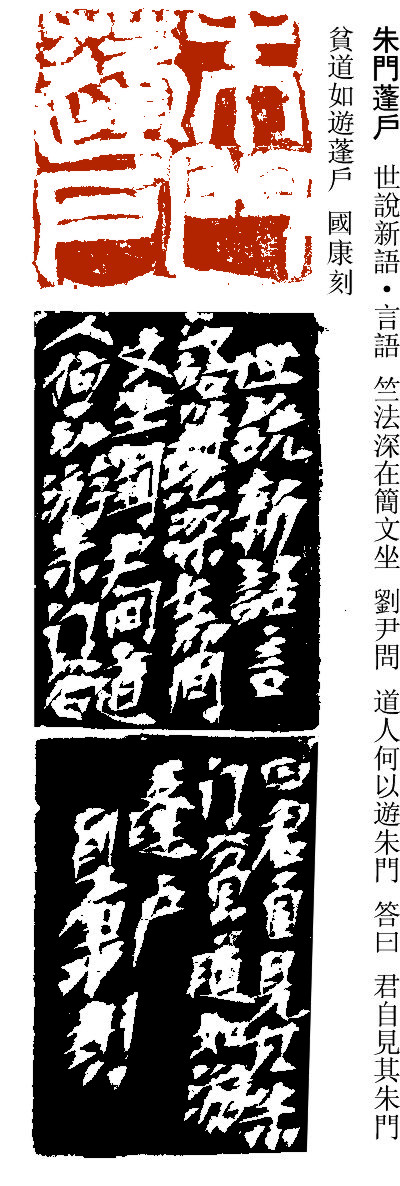 朱門蓬戶 世說新語・言語 竺法深在簡文坐 劉尹問 道人何以遊朱門 答曰 君自見其朱門
貧道如遊蓬戶 國康刻
朱門
蓬戶
世説新語言
語竺法深在简
文坐劉尹问道
人何以游朱门答
曰君自見其朱
门貧道如游
蓬户
國康刻